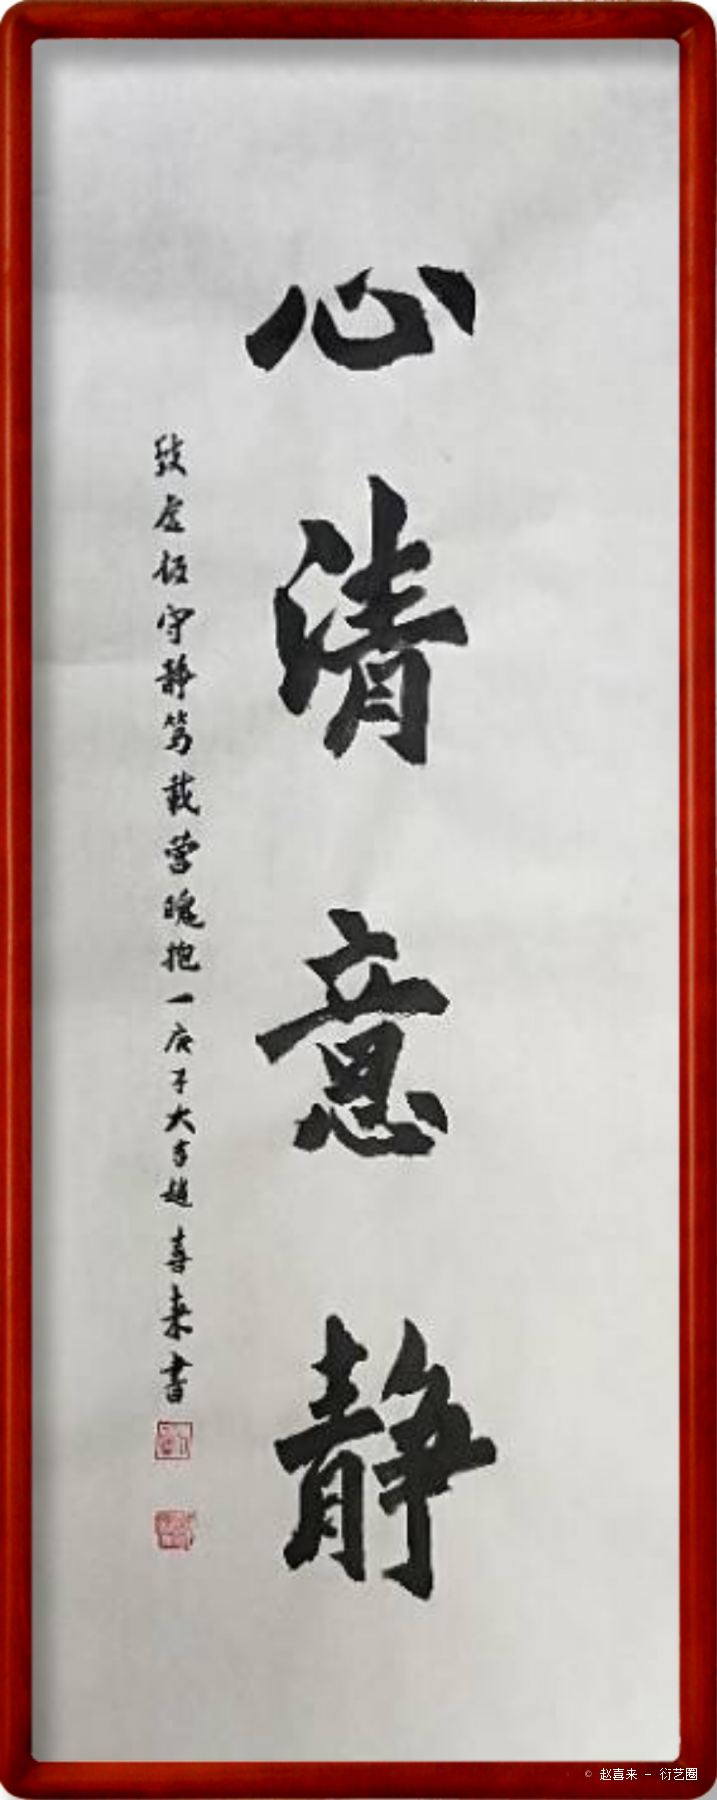 心清意静
致虚恒守静笃载营魄抱一庚子大雪赵喜来书
© 赵喜来 - 衍艺圈